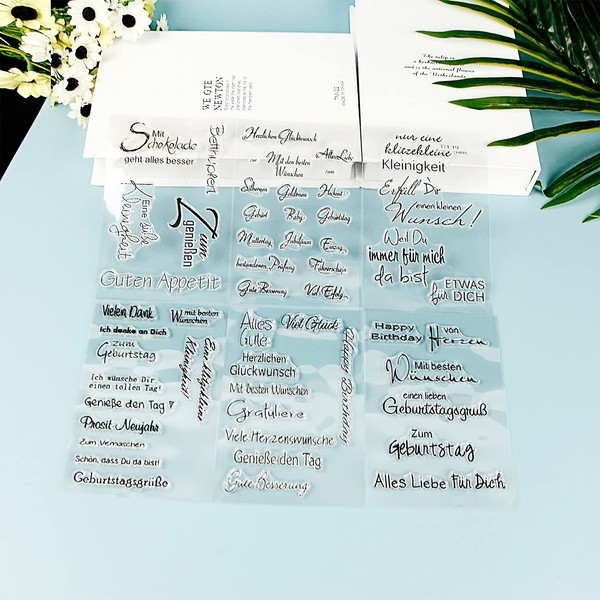 The tulip is
and is the national flower
of the Netherlands
WE GTE
NEWTON
MADE IN CHINA
Mit
Schokolade
geht alles besser
Betthupferl
Eine süße
Kleinigkeit
Zum
genießen
Guten Appetit
Herzlichen Glückwunsch
zum
Alles Liebe
Mit den besten
Wünschen
zum
Silbernen
Goldenen
Hochzeit
Geburt
Baby
Geburtstag
Muttertag
Jubiläum
Einzug
bestandenen Prüfung
Führerschein
Gute Besserung
Viel Erfolg
nur eine
klitzekleine
Kleinigkeit
Erfüll Dir
einen kleinen
Wunsch!
Weil Du
immer für mich
da bist
ETWAS
für DICH
Vielen Dank
Mit besten
Wünschen
Ich denke an Dich
zum
Geburtstag
Eine klitzekleine
Kleinigkeit
Ich wünsche Dir
einen tollen Tag!
Genieße den Tag
Prosit Neujahr
Zum Vernaschen
Schön, dass Du da bist!
Geburtstagsgrüße
Alles
Gute
Viel Glück
Happy Birthday
Herzlichen
Glückwunsch
Mit besten Wünschen
Gratuliere
Viele Herzenswünsche
Genieße den Tag
Gute Besserung
Happy
Birthday
von
Herzen
Mit besten
Wünschen
einen lieben
Geburtstagsgruß
Zum
Geburtstag
Alles Liebe für Dich